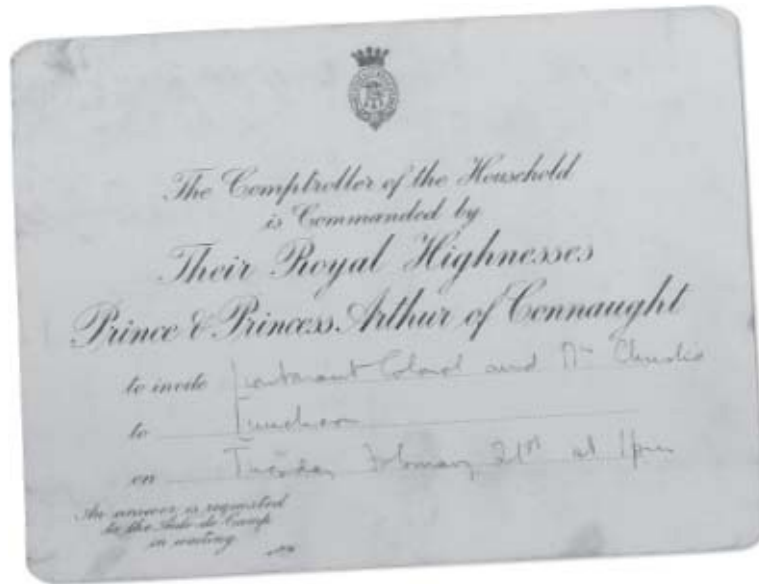 The Comptroller of the Household
is Commanded by
Their Royal Highnesses
Prince & Princess Arthur of Connaught
to invite Lieutenant Colonel and Mrs
to Luncheon
on Tuesday February 21st at 1pm
An answer is requested
to the Aide-de-Camp
in waiting